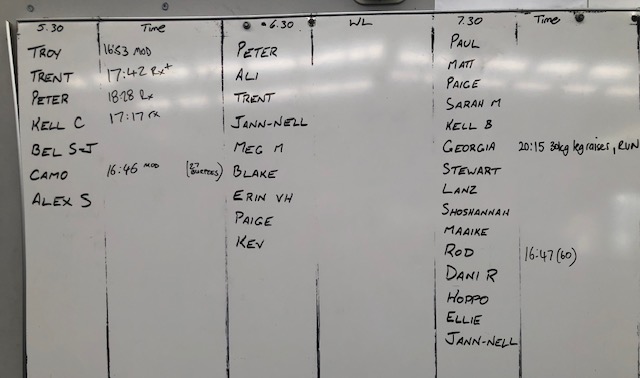 5.30 Time
TROY 16:53 MOD
TRENT 17:42 Rx+
PETER 18:28 Rx
KELL C 17:17 rx
BEL S-J
CAMO 16:46 MOD (27 BURPEES)
ALEX S
6.30 WL
PETER
ALI
TRENT
JANN-NELL
MEG M
BLAKE
ERIN VH
PAIGE
KEV
7.30 Time
PAUL
MATT
PAIGE
SARAH M
KELL B
GEORGIA 20:15 30kg leg raises, RUN
STEWART
LANZ
SHOSHANNAH
MAAIKE
ROD 16:47 (60)
DANI R
HOPPO
ELLIE
JANN-NELL